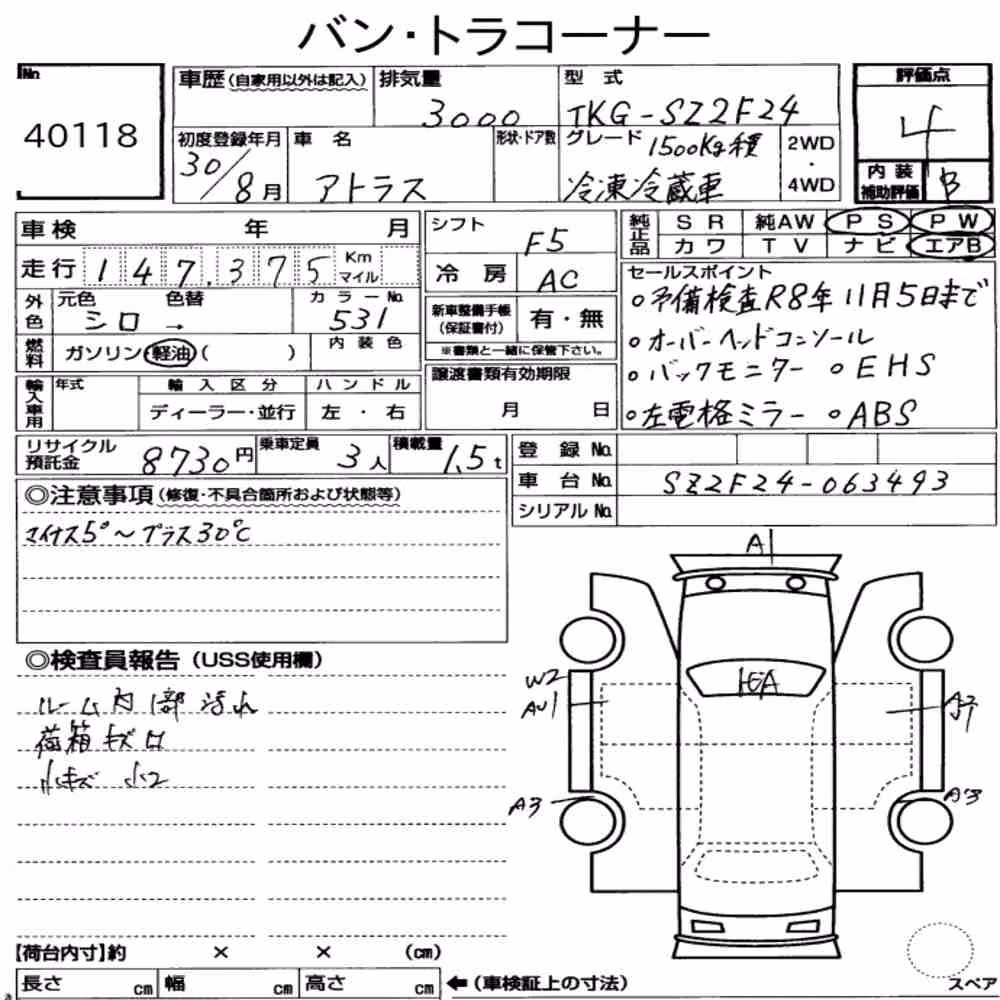 バン・トラコーナー
No.
40118
車歴(自家用以外は記入)
排気量
3000
型 式
TKG-SZ2F24
評価点
4
初度登録年月
30/8月
車 名
アトラス
形状・ドア数
グレード 1500Kg積
冷凍冷蔵車
2WD
・
4WD
内 装
補助評価
B
車検 年 月
シフト
F5
純正品
SR 純AW PS PW
カワ TV ナビ エアB
走行 147,375 Km
マイル
冷 房
AC
セールスポイント
○予備検査R8年11月5日まで
○オーバーヘッドコンソール
○バックモニター ○EHS
○左電格ミラー ○ABS
外色
元色 色替
シロ →
カラーNo.
531
新車整備手帳
(保証書付)
有・無
※書類と一緒に保管下さい。
燃料
ガソリン・軽油( )
内 装 色
輸入車用
年式
輸 入 区 分
ディーラー・並行
ハ ン ド ル
左 ・ 右
譲渡書類有効期限
月 日
リサイクル
預託金
8730円
乗車定員
3人
積載量
1.5t
登 録 No.
車 台 No.
SZ2F24-063493
シリアル No.
◎注意事項(修復・不具合箇所および状態等)
マイナス5°~プラス30℃
◎検査員報告(USS使用欄)
ルーム内部汚れ
荷箱キズロ
小キズ 小2
A1
W2
AU1
A3
A3
【荷台内寸】約 × × (cm)
長さ cm 幅 cm 高さ cm
←(車検証上の寸法)
スペア